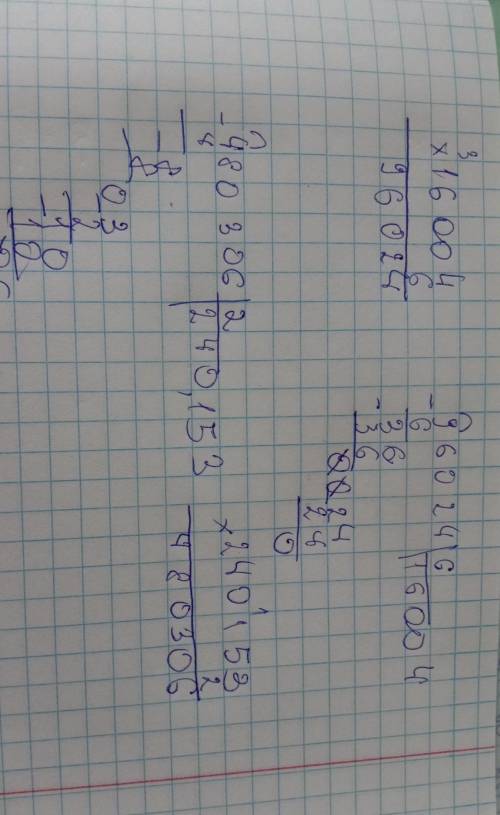 × 16004
6
96024
- 96024 6
6 16004
36
- 36
0024
24
0
- 480306 2
4 240,153
8
- 8
03
- 2
10
- 10
× 240153
2
480306